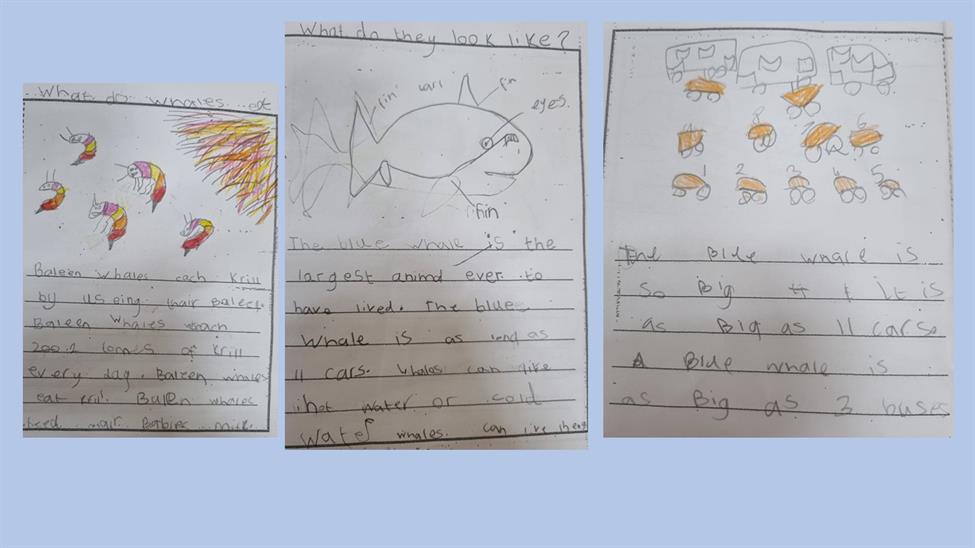 What do whales eat
Baleen whales cach krill
by useing thair Baleet.
Baleen whales
200.2 tonnes of krill
every day. Baleen whales
eat krill. Balen whales
feed thair Babies milk.
What do they look like?
fin
tail
fin
eyes.
fin
The blue whale is the
largest animal ever to
have lived. The blue
whale is as long as
11 cars. Whales can like
hot water or cold
water whales. can live
9
8
6
1
2
3
4
5
The Blue whale is
so Big it is
as Big as 11 cars.
A Blue whale is
as Big as 3 buses